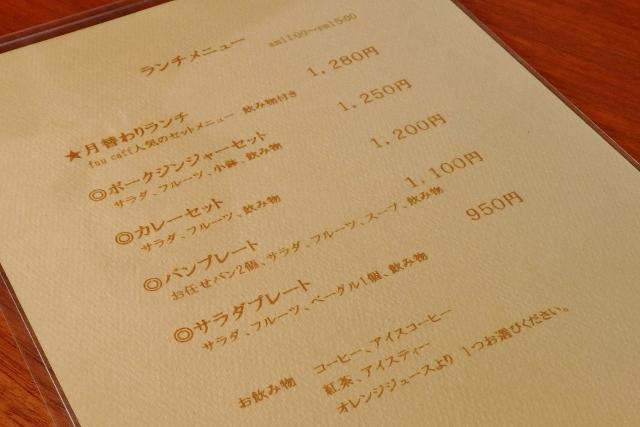 ランチメニュー am11:00〜pm15:00
★月替わりランチ 1,280円
fuu caff人気のセットメニュー 飲み物付き
◎ポークジンジャーセット 1,250円
サラダ、フルーツ、小鉢、飲み物
◎カレーセット 1,200円
サラダ、フルーツ、飲み物
◎パンプレート 1,100円
お任せパン2個、サラダ、フルーツ、スープ、飲み物
◎サラダプレート 950円
サラダ、フルーツ、ベーグル1個、飲み物
お飲み物 コーヒー、アイスコーヒー
紅茶、アイスティー
オレンジジュースより 1つお選びください。